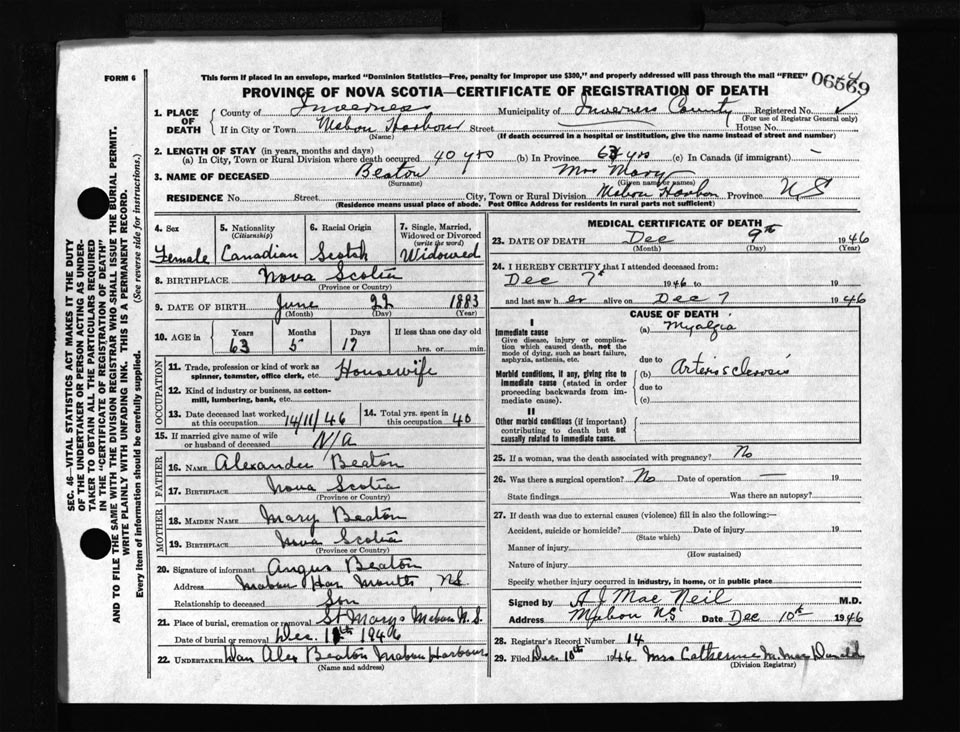 FORM 6
This form if placed in an envelope, marked "Dominion Statistics—Free, penalty for improper use $300," and properly addressed will pass through the mail "FREE"
PROVINCE OF NOVA SCOTIA—CERTIFICATE OF REGISTRATION OF DEATH
06569
1. PLACE OF DEATH
County of Inverness Municipality of Inverness County Registered No.
(For use of Registrar General only)
If in City or Town Mabou Harbour Street House No.
(Name) (If death occurred in a hospital or institution, give the name instead of street and number)
2. LENGTH OF STAY (in years, months and days)
(a) In City, Town or Rural Division where death occurred 40 yrs (b) In Province 63 yrs (c) In Canada (if immigrant) —
3. NAME OF DECEASED Beaton Mrs Mary
(Surname) (Given name or names)
RESIDENCE No. Street City, Town or Rural Division Mabou Harbour Province NS
(Residence means usual place of abode. Post Office Address for residents in rural parts not sufficient)
SEC. 46—VITAL STATISTICS ACT MAKES IT THE DUTY
OF THE UNDERTAKER OR PERSON ACTING AS UNDER-
TAKER TO OBTAIN ALL THE PARTICULARS REQUIRED
IN THE "CERTIFICATE OF REGISTRATION OF DEATH"
AND TO FILE THE SAME WITH THE DIVISION REGISTRAR WHO SHALL ISSUE THE BURIAL PERMIT.
WRITE PLAINLY WITH UNFADING INK. THIS IS A PERMANENT RECORD.
Every item of information should be carefully supplied. (See reverse side for instructions.)
4. Sex Female
5. Nationality (Citizenship) Canadian
6. Racial Origin Scotch
7. Single, Married, Widowed or Divorced (write the word) Widowed
8. BIRTHPLACE Nova Scotia
(Province or Country)
9. DATE OF BIRTH June 22 1883
(Month) (Day) (Year)
10. AGE in Years 63 Months 5 Days 17 If less than one day old hrs. or min.
OCCUPATION
11. Trade, profession or kind of work as spinner, teamster, office clerk, etc. Housewife
12. Kind of industry or business, as cotton-mill, lumbering, bank, etc.
13. Date deceased last worked at this occupation 14/11/46
14. Total yrs. spent in this occupation 40
15. If married give name of wife or husband of deceased N/A
FATHER
16. NAME Alexander Beaton
17. BIRTHPLACE Nova Scotia
(Province or Country)
MOTHER
18. MAIDEN NAME Mary Beaton
19. BIRTHPLACE Nova Scotia
(Province or Country)
20. Signature of informant Angus Beaton
Address Mabou Har Mouth, NS
Relationship to deceased Son
21. Place of burial, cremation or removal St Marys Mabou N.S.
Date of burial or removal Dec. 1946
22. UNDERTAKER Dan Alex Beaton Mabou Harbour
(Name and address)
MEDICAL CERTIFICATE OF DEATH
23. DATE OF DEATH Dec 9th 1946
(Month) (Day) (Year)
24. I HEREBY CERTIFY that I attended deceased from:
Dec 7th 1946 to 19
and last saw her alive on Dec 7 1946
CAUSE OF DEATH
I
Immediate cause (a) Myalgia
Give disease, injury or complication which caused death, not the mode of dying, such as heart failure, asphyxia, asthenia, etc.
due to
Morbid conditions, if any, giving rise to immediate cause (stated in order proceeding backwards from immediate cause). (b) Arteriosclerosis
due to
(c)
II
Other morbid conditions (if important) contributing to death but not causally related to immediate cause.
25. If a woman, was the death associated with pregnancy? No
26. Was there a surgical operation? No Date of operation — 19
State findings Was there an autopsy?
27. If death was due to external causes (violence) fill in also the following:—
Accident, suicide or homicide? Date of injury 19
(State which)
Manner of injury
(How sustained)
Nature of injury
Specify whether injury occurred in industry, in home, or in public place
Signed by A J MacNeil M.D.
Address Mabou N.S Date Dec 10th 1946
28. Registrar's Record Number 14
29. Filed Dec. 10th 1946 Mrs Catherine M. MacDonald
(Division Registrar)